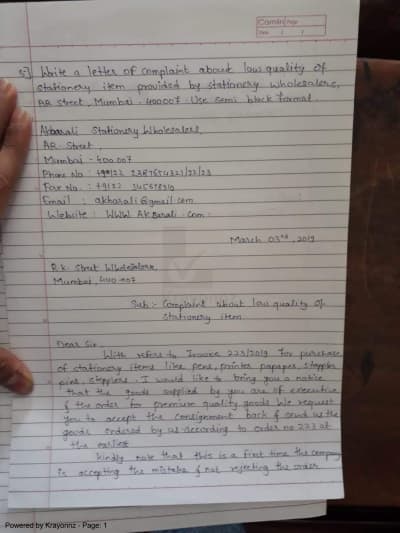 Camlin Page
Date / /
Q5] Write a letter of complaint about low quality of
stationery item provided by stationery wholesalers,
AR street, Mumbai - 400007. Use semi block format.
Akbarali Stationery Wholesalers,
AR. Street,
Mumbai - 400 007
Phone No : 2287654321/22/23
Fax No. : +9122
Email : akbarali@gmail.com
Website : WWW.Akbarali.com.
March 03rd, 2019
R.k. Street Wholesalers
Mumbai, 400 007
Sub :- Complaint about low quality of
stationery item
Dear Sir,
With refers to Invoice 223/2019 for purchase
of stationery items like pens, printer papaper, stappler
pins, stepplers. I would like to bring you a notice
that the goods supplied by you are of executive
& the order for premium quality goods. We request
you to accept the consignment back & send us the
goods ordered by us according to order no 223 at
the earliest
kindly note that this is a first time the company
is accepting the mistake & not rejecting the order
Powered by Krayonnz - Page: 1